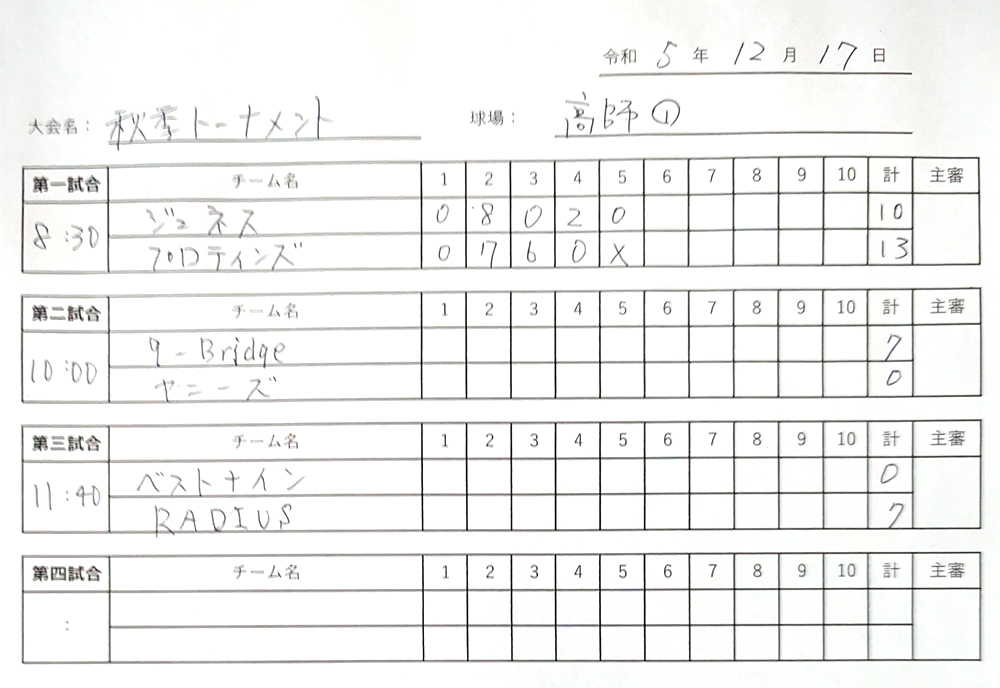 令和 5 年 12 月 17 日
大会名： 秋季トーナメント 球場： 高師①
第一試合 チーム名 1 2 3 4 5 6 7 8 9 10 計 主審
8:30 ジュネス 0 8 0 2 0 10
プロティインズ 0 7 6 0 X 13
第二試合 チーム名 1 2 3 4 5 6 7 8 9 10 計 主審
10:00 9-Bridge 7
ヤニーズ 0
第三試合 チーム名 1 2 3 4 5 6 7 8 9 10 計 主審
11:40 ベストナイン 0
RADIUS 7
第四試合 チーム名 1 2 3 4 5 6 7 8 9 10 計 主審
: